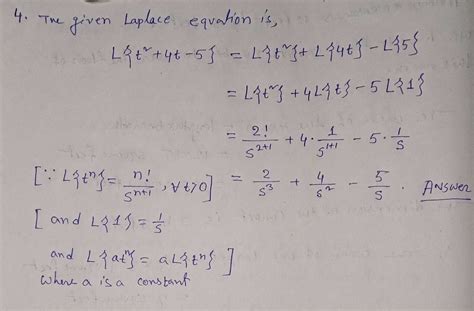 4. The given Laplace equation is,
L{t²+4t-5} = L{t²}+L{4t}-L{5}
= L{t²}+4L{t}-5L{1}
= 2!/s^(2+1) + 4·1/s^(1+1) - 5·1/s
[∵ L{tⁿ} = n!/s^(n+1), ∀ t>0] = 2/s³ + 4/s² - 5/s. Answer
[ and L{1} = 1/s
and L{atⁿ} = aL{tⁿ} ]
where a is a constant